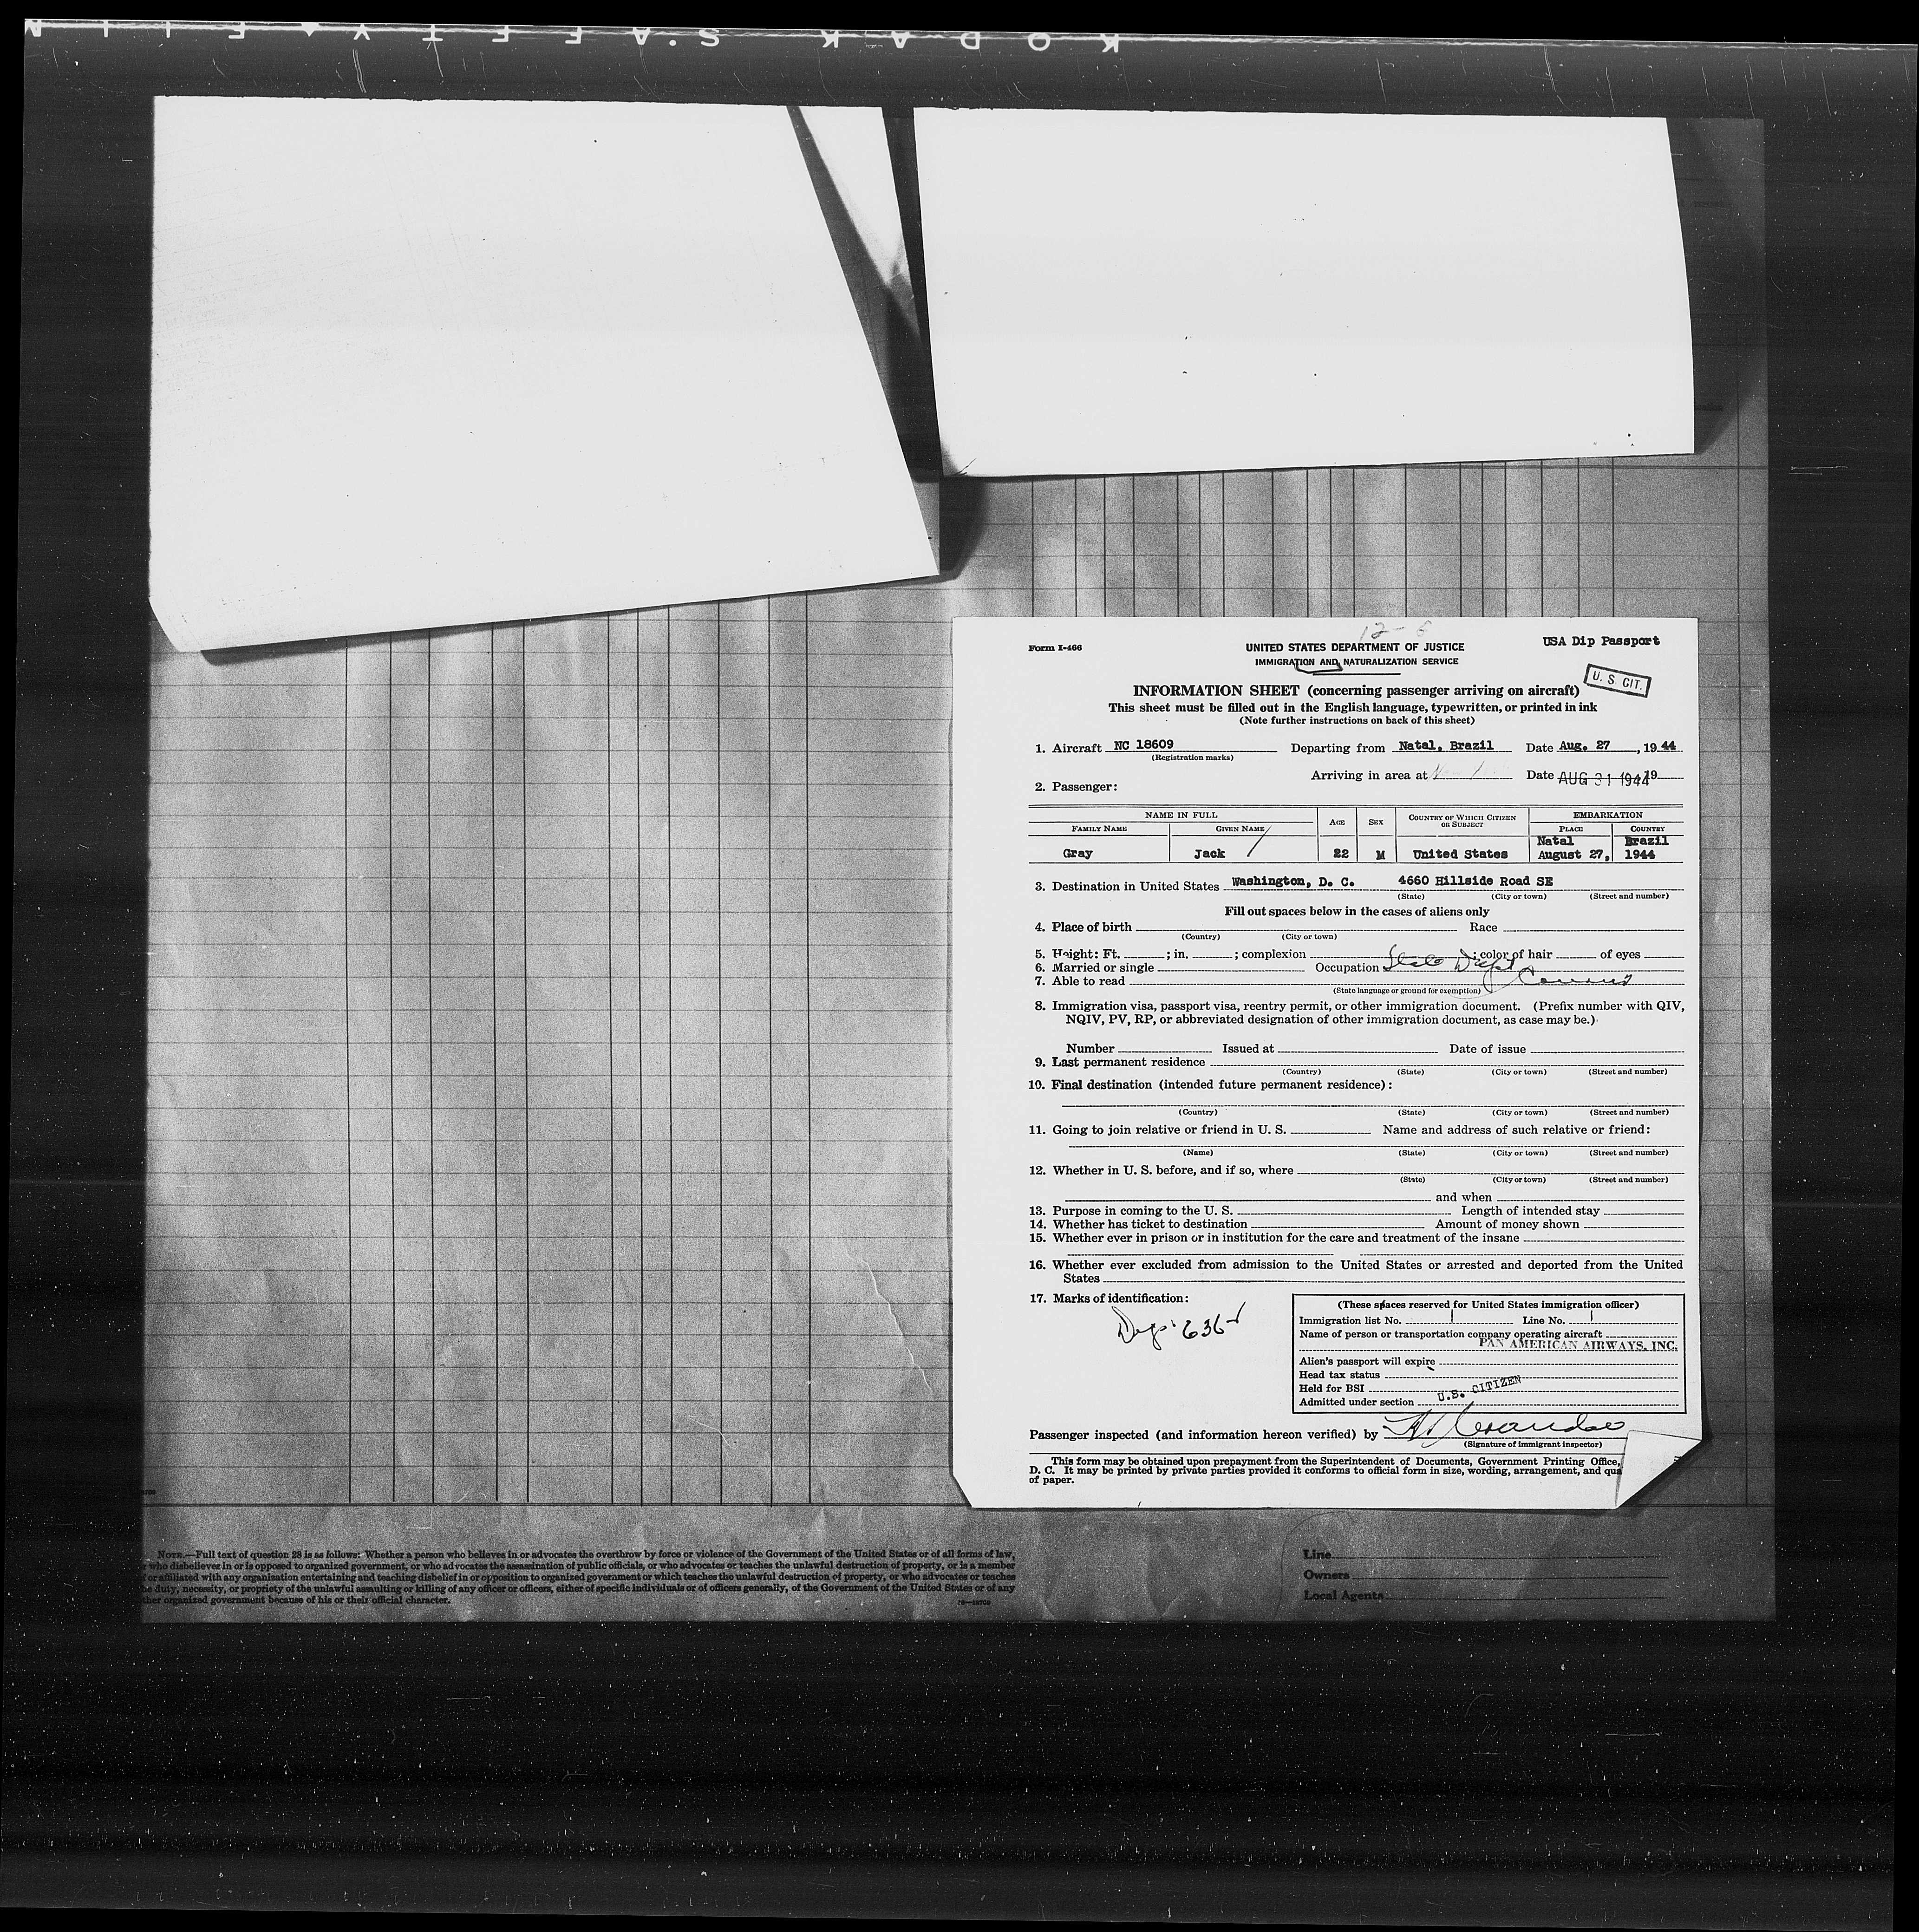 KODAK SAFETY FILM
12-6
Form I-466
UNITED STATES DEPARTMENT OF JUSTICE
USA Dip Passport
IMMIGRATION AND NATURALIZATION SERVICE
U. S. CIT.
INFORMATION SHEET (concerning passenger arriving on aircraft)
This sheet must be filled out in the English language, typewritten, or printed in ink
(Note further instructions on back of this sheet)
1. Aircraft NC 18609 Departing from Natal, Brazil Date Aug. 27, 1944
(Registration marks)
Arriving in area at Date AUG 31 1944 19
2. Passenger:
NAME IN FULL AGE SEX COUNTRY OF WHICH CITIZEN OR SUBJECT EMBARKATION
FAMILY NAME GIVEN NAME PLACE COUNTRY
Natal Brazil
Gray Jack 22 M United States August 27, 1944
3. Destination in United States Washington, D. C. 4660 Hillside Road SE
(State) (City or town) (Street and number)
Fill out spaces below in the cases of aliens only
4. Place of birth Race
(Country) (City or town)
5. Height: Ft. ; in. ; complexion ; color of hair of eyes
6. Married or single Occupation State Dept
7. Able to read
(State language or ground for exemption)
8. Immigration visa, passport visa, reentry permit, or other immigration document. (Prefix number with QIV,
NQIV, PV, RP, or abbreviated designation of other immigration document, as case may be.)
Number Issued at Date of issue
9. Last permanent residence
(Country) (State) (City or town) (Street and number)
10. Final destination (intended future permanent residence):
(Country) (State) (City or town) (Street and number)
11. Going to join relative or friend in U. S. Name and address of such relative or friend:
(Name) (State) (City or town) (Street and number)
12. Whether in U. S. before, and if so, where
(State) (City or town) (Street and number)
and when
13. Purpose in coming to the U. S. Length of intended stay
14. Whether has ticket to destination Amount of money shown
15. Whether ever in prison or in institution for the care and treatment of the insane
16. Whether ever excluded from admission to the United States or arrested and deported from the United
States
17. Marks of identification:
(These spaces reserved for United States immigration officer)
Immigration list No. 1 Line No. 1
Name of person or transportation company operating aircraft
PAN AMERICAN AIRWAYS, INC.
Alien's passport will expire
Head tax status
Held for BSI
Admitted under section U.S. CITIZEN
Passenger inspected (and information hereon verified) by
(Signature of immigrant inspector)
This form may be obtained upon prepayment from the Superintendent of Documents, Government Printing Office,
D. C. It may be printed by private parties provided it conforms to official form in size, wording, arrangement, and qua
of paper.
NOTE.—Full text of question 28 is as follows: Whether a person who believes in or advocates the overthrow by force or violence of the Government of the United States or of all forms of law,
who disbelieves in or is opposed to organized government, or who advocates the assassination of public officials, or who advocates or teaches the unlawful destruction of property, or is a member
or affiliated with any organization entertaining and teaching disbelief in or opposition to organized government or which teaches the unlawful destruction of property, or who advocates or teaches
he duty, necessity, or propriety of the unlawful assaulting or killing of any officer or officers, either of specific individuals or of officers generally, of the Government of the United States or of any
ther organized government because of his or their official character.
Line
Owners
Local Agents